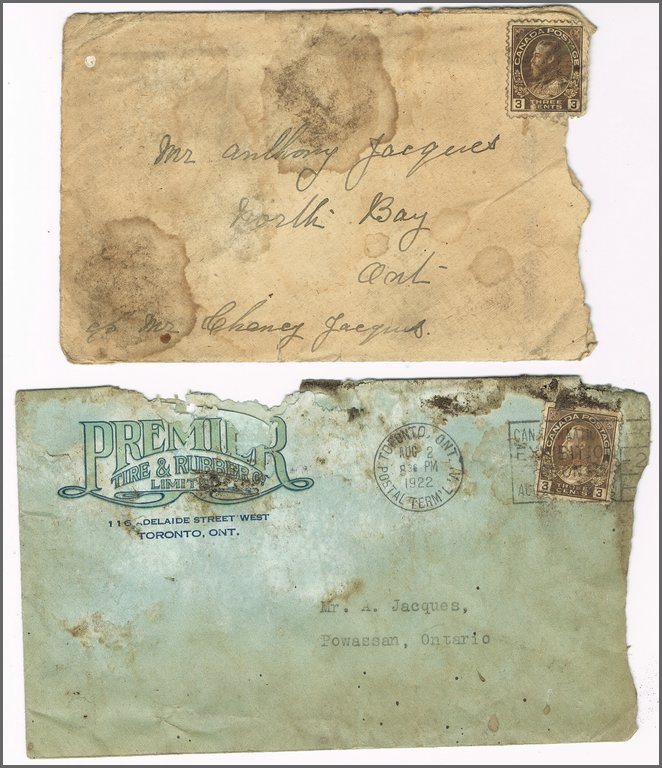 CANADA POSTAGE
3 THREE CENTS 3
Mr Anthony Jacques
North Bay
Ont
c/o Mr. Chaney Jacques.
PREMIER
TIRE & RUBBER Co
LIMITED
116 ADELAIDE STREET WEST
TORONTO, ONT.
TORONTO, ONT.
AUG 2
PM
1922
POSTAL TERM'L "A"
CANADA POSTAGE
3 CENTS 3
Mr. A. Jacques,
Powassan, Ontario